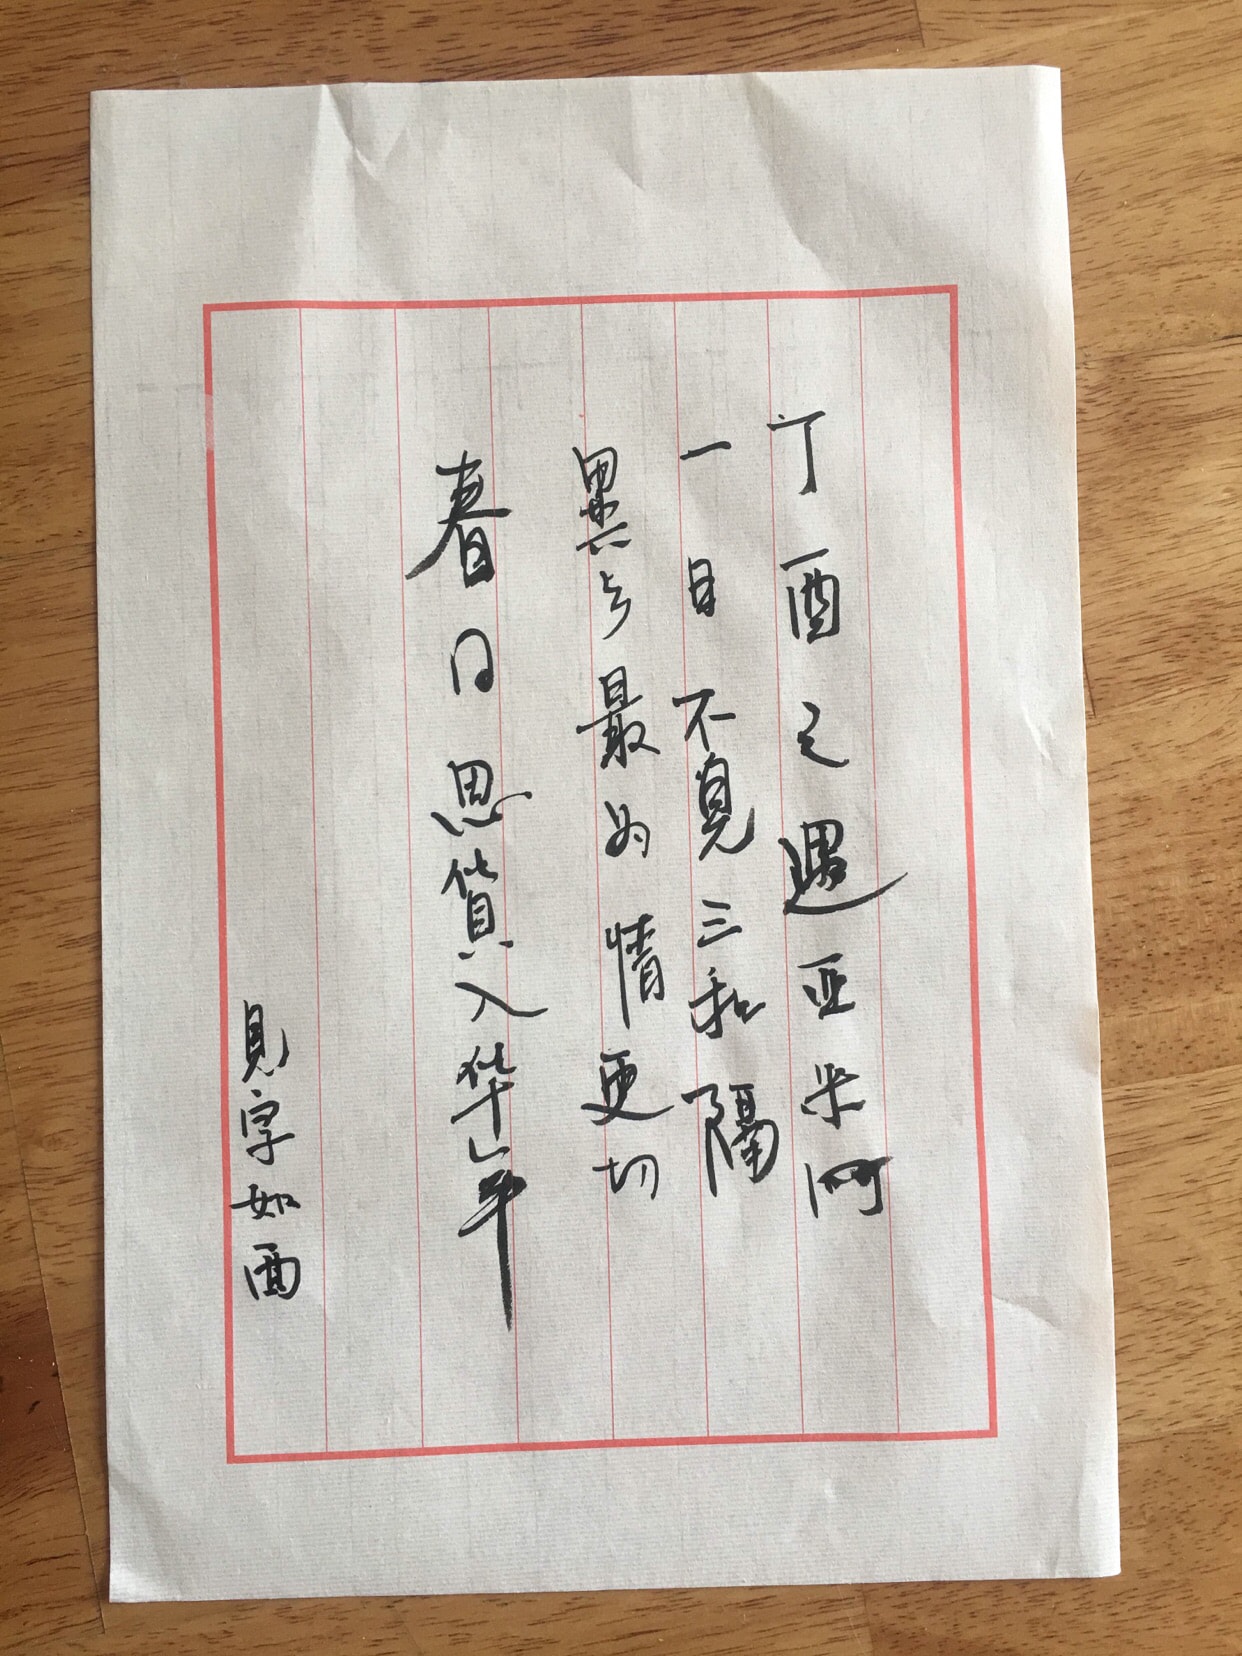 丁酉之遇亚米阿
一日不見三秋隔
異乡最为情更切
春日思貨入华年
見字如面